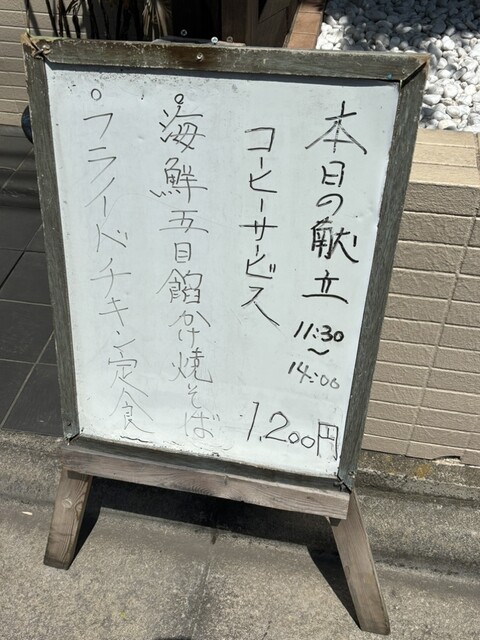 本日の献立
11:30
～
14:00
コーヒーサービス
1,200円
海鮮五目餡かけ焼そば
フライドチキン定食